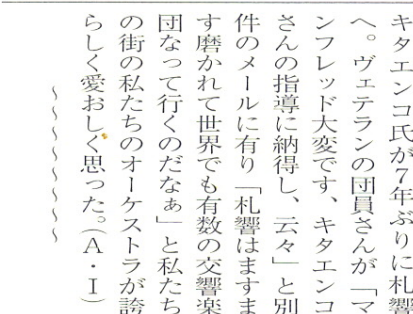 キタエンコ氏が7年ぶりに札響
へ。ヴェテランの団員さんが「マ
ンフレッド大変です、キタエンコ
さんの指導に納得し、云々」と別
件のメールに有り「札響はますま
す磨かれて世界でも有数の交響楽
団なって行くのだなぁ」と私たち
の街の私たちのオーケストラが誇
らしく愛おしく思った。(A・I)
～～～～～～～